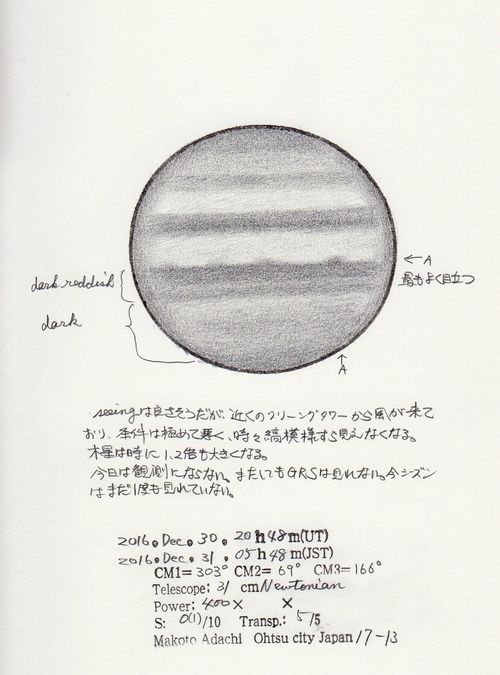 ← A
dark reddish 最もよく目立つ
dark
↑
A
seeingは良さそうだが、近くのクリーングタワーから風が来て
おり、条件は極めて悪く、時々縞模様すら見えなくなる。
木星は時に1,2倍も大きくなる。
今日は観測にならない。またしてもGRSは見れない。今シズン
はまだ1度も見れていない。
2016. Dec. 30. 20h48m(UT)
2016. Dec. 31. 05h48m(JST)
CM1=303° CM2= 69° CM3=166°
Telescope: 31 cm Newtonian
Power: 400× ×
S: 0(1)/10 Transp.: 5/5
Makoto Adachi Ohtsu city Japan /7-13